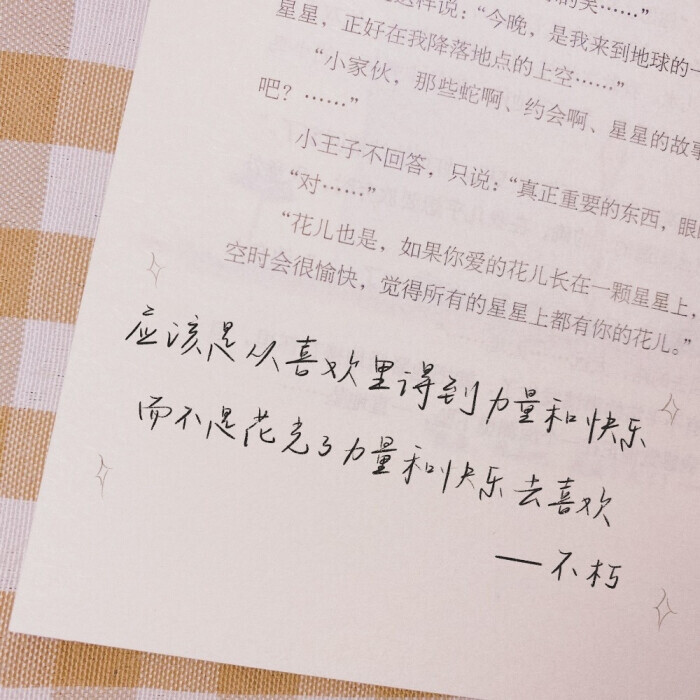 这样说：“今晚，是我来到地球的一
星星，正好在我降落地点的上空……”
“小家伙，那些蛇啊、约会啊、星星的故事
吧？……”
小王子不回答，只说：“真正重要的东西，眼
“对……”
“花儿也是，如果你爱的花儿长在一颗星星上，
空时会很愉快，觉得所有的星星上都有你的花儿。”
应该是从喜欢里得到力量和快乐
而不是花光了力量和快乐去喜欢
——不朽